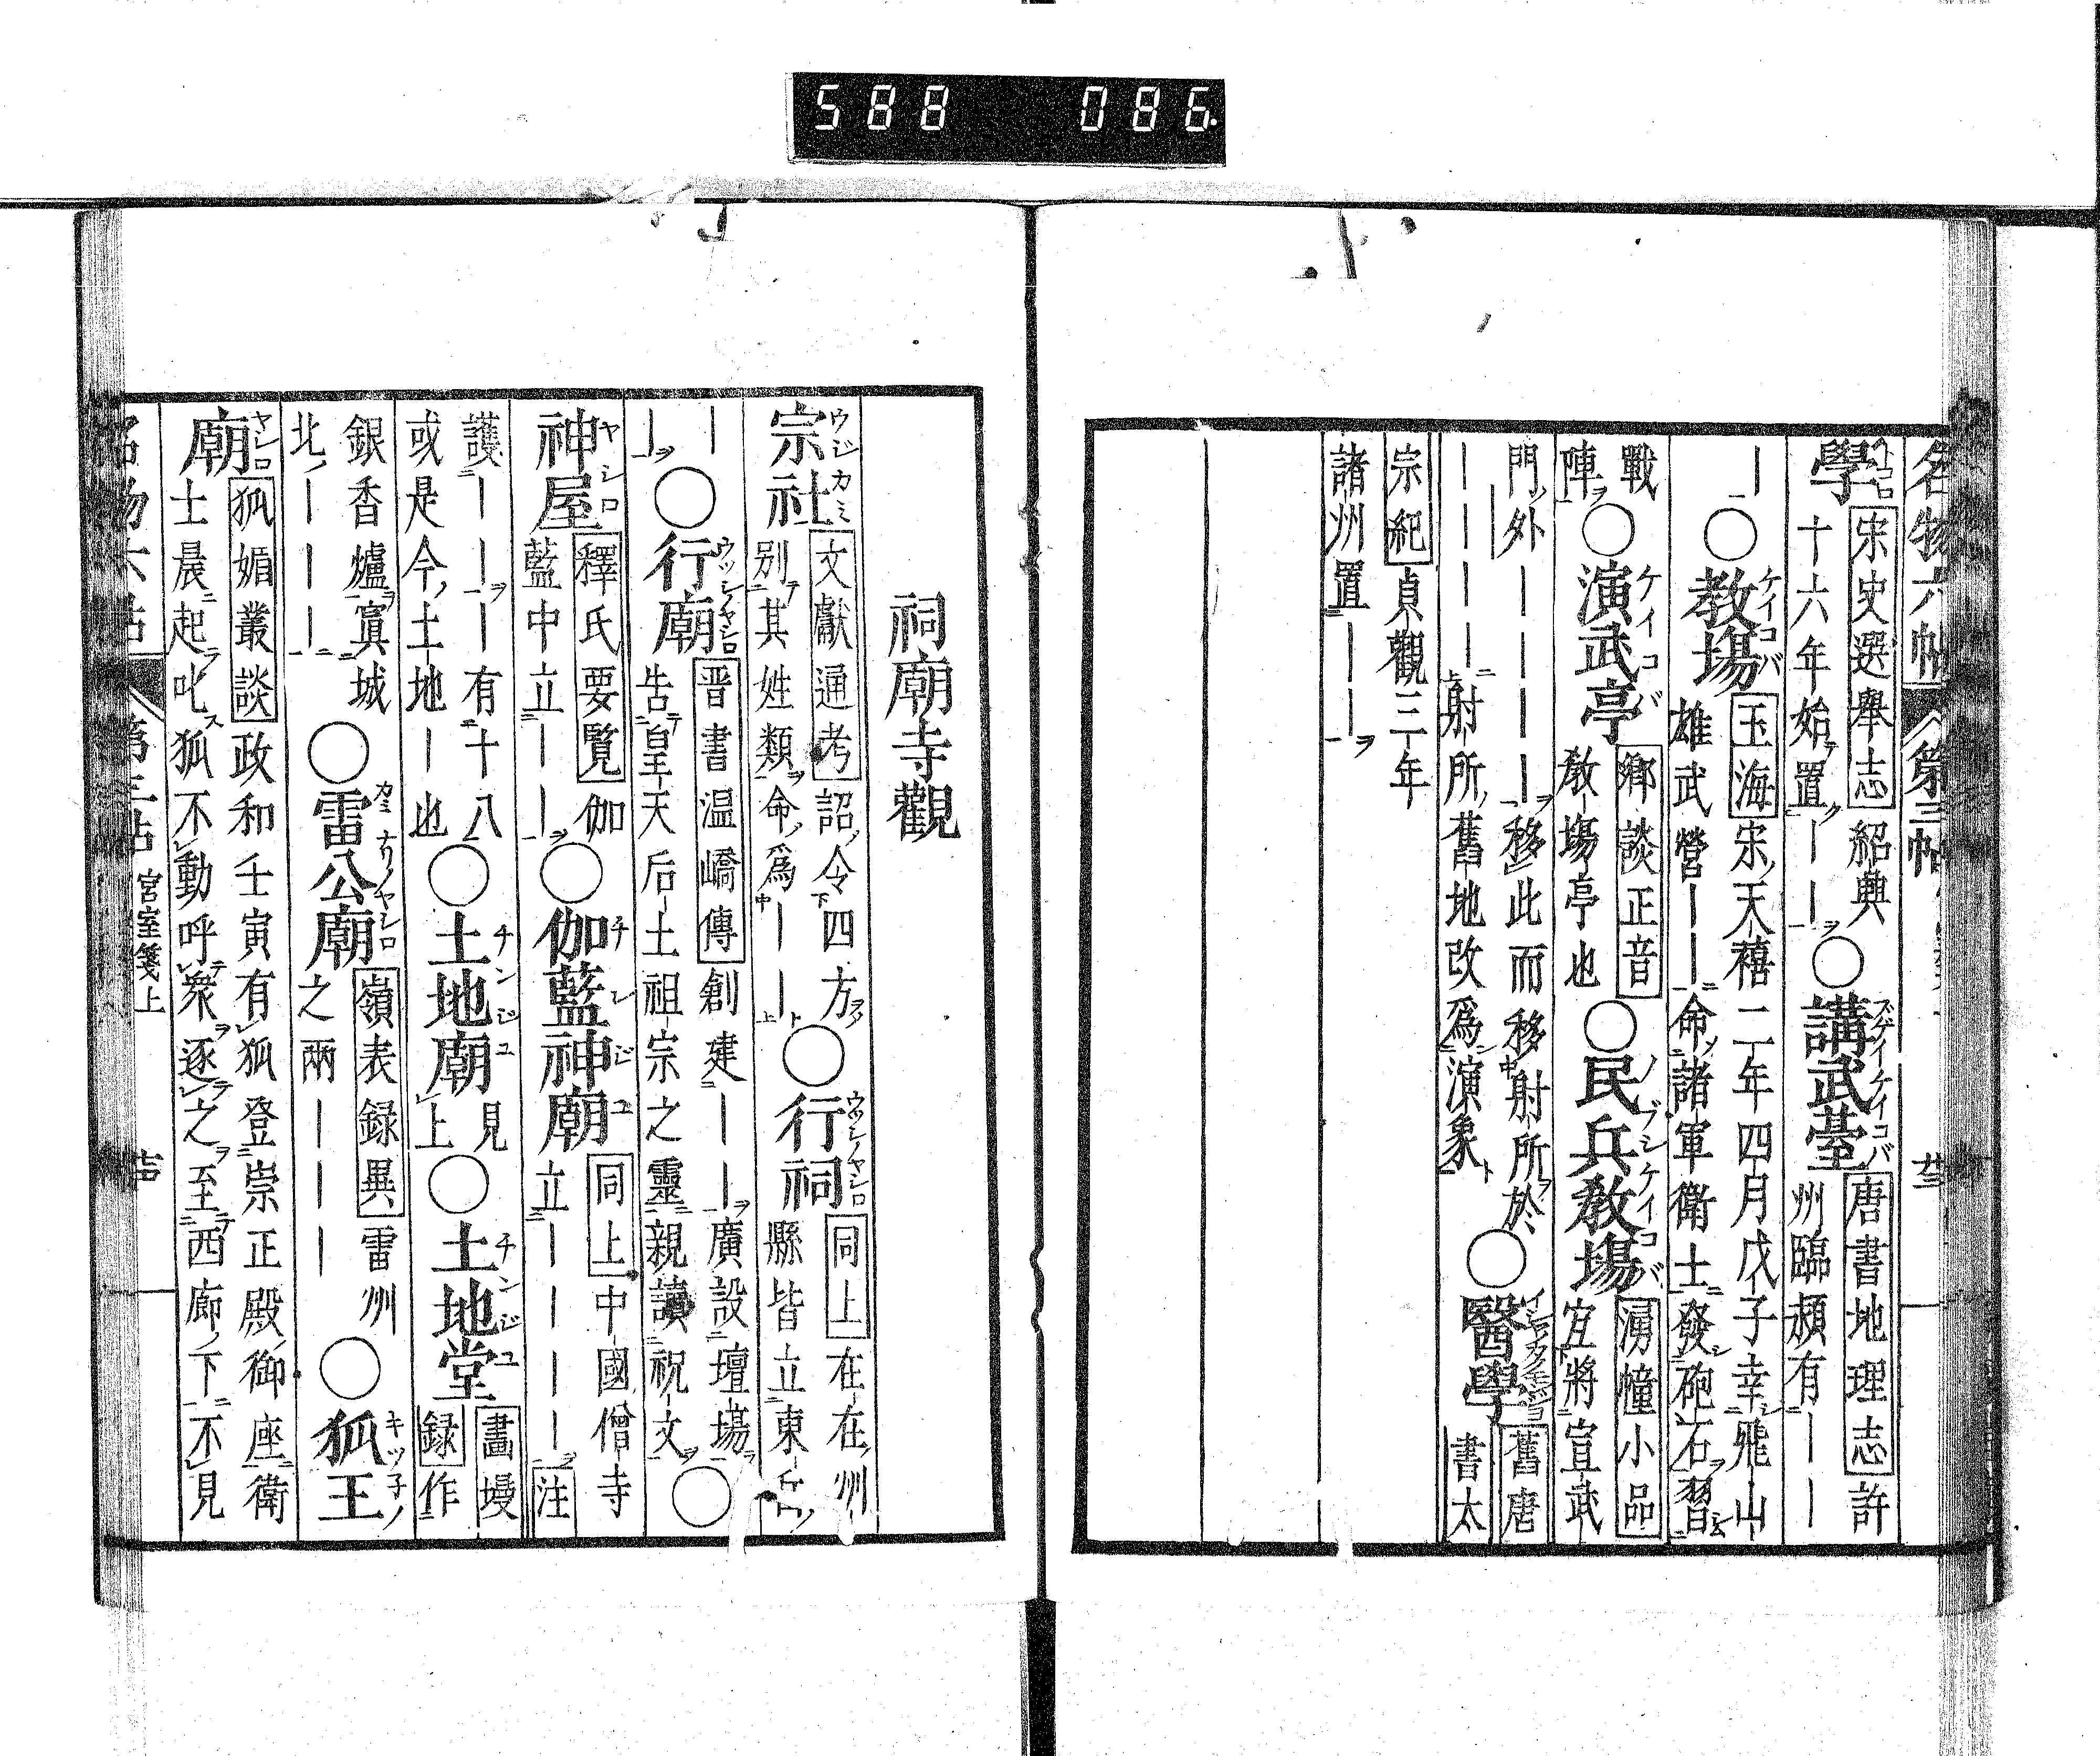 588 086
名物六帖 第三帖 廿三
學 宋史選舉志 紹興
十六年始置｜｜
○講武臺 唐書地理志 許
州臨潁有｜｜
｜○教場 玉海 宋天禧二年四月戊子幸飛山
雄武營｜｜命諸軍衛士發砲石習
戰
陣○演武亭 鄉談正音
教場亭也
○民兵教場 湧幢小品
宜將宣武
門外｜｜｜｜移此而移射所於
｜｜｜｜射所舊地改為演象
○醫學 舊唐
書太
宗紀 貞觀三年
諸州置｜｜
祠廟寺觀
宗社 文獻通考 詔令四方
別其姓類命為｜｜
○行祠 同上 在在州
縣皆立東岳
｜
｜○行廟 晋書温嶠傳 創建｜｜廣設壇場
告皇天后土祖宗之靈親讀祝文○
神屋 釋氏要覽 伽
藍中立｜｜
○伽藍神廟 同上 中國僧寺
立｜｜｜｜注
護｜｜｜有十八
或是今土地｜也
○土地廟 見
上
○土地堂 畫墁
録 作
銀香爐寘城
北｜｜｜
○雷公廟 嶺表録異 雷州
之兩｜｜｜
○狐王
廟 狐媚叢談 政和壬寅有狐登崇正殿御座衛
士晨起叱狐不動呼衆逐之至西廊下不見
名物六帖 第三帖 宮室箋上